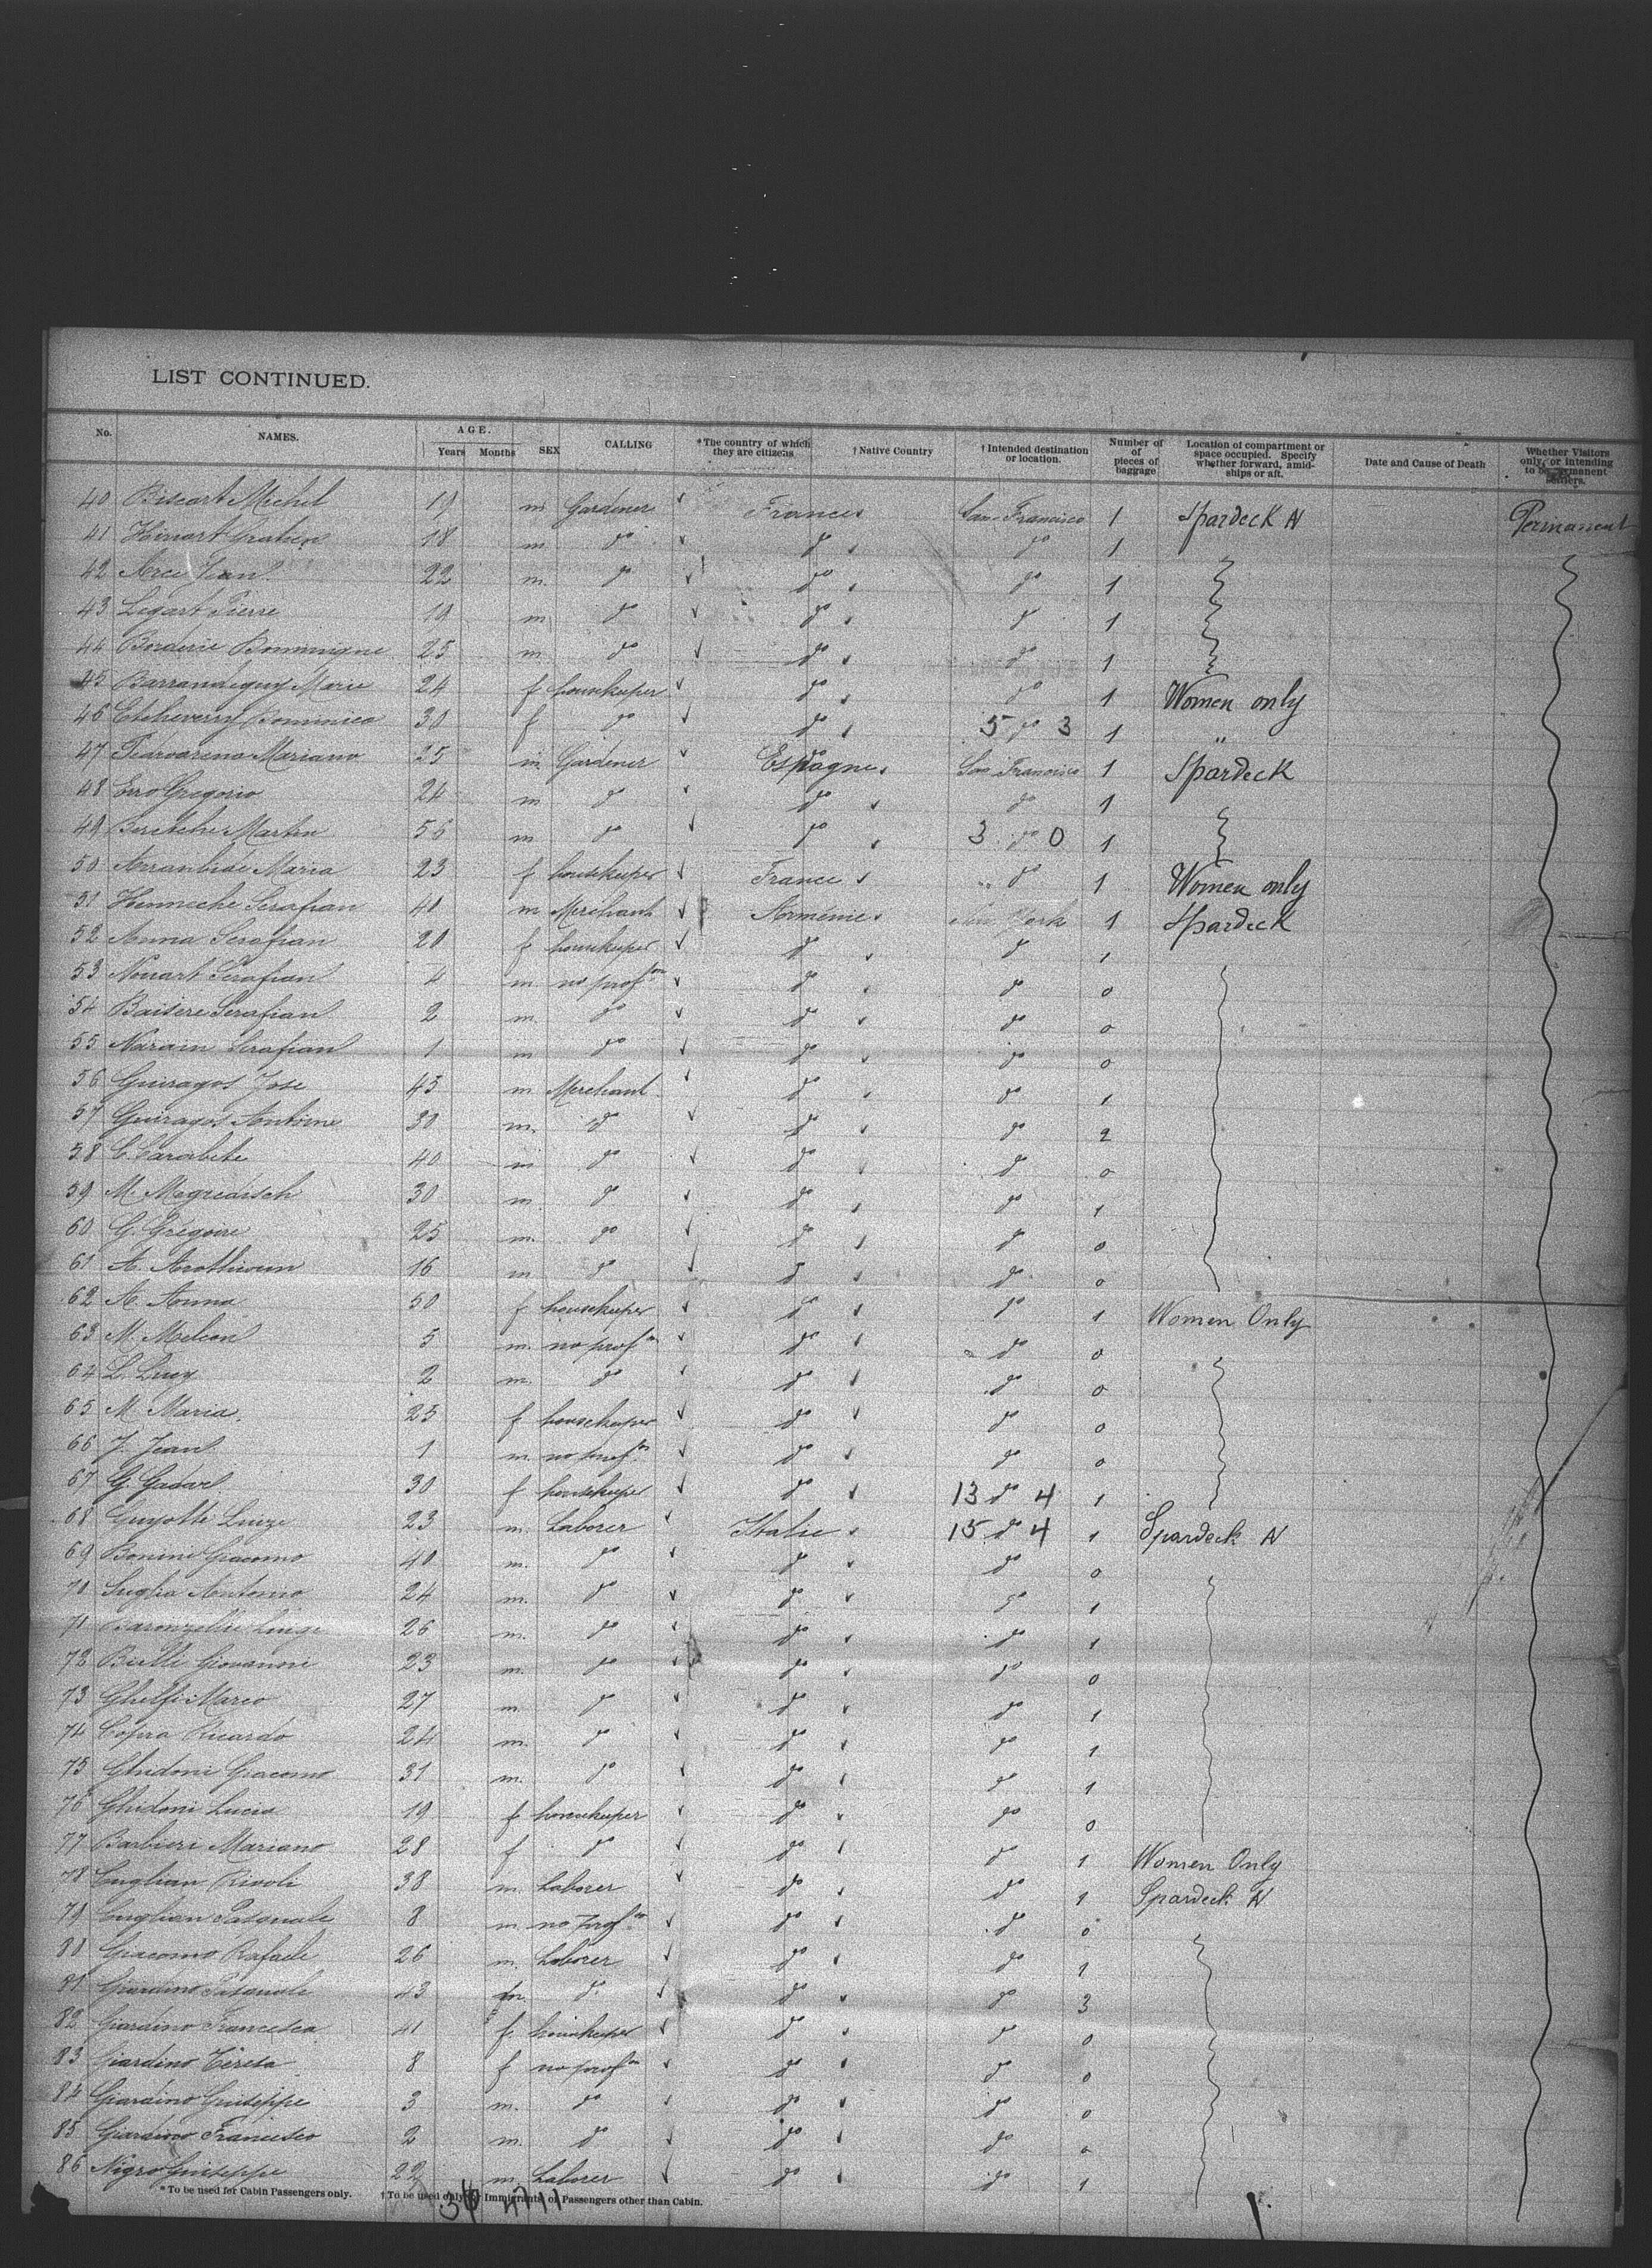 LIST CONTINUED.
No. NAMES. AGE. Years Months SEX CALLING *The country of which they are citizens †Native Country †Intended destination or location. Number of pieces of baggage Location of compartment or space occupied. Specify whether forward, amidships or aft. Date and Cause of Death Whether Visitors only, or intending to be permanent settlers.
40 Biscart Michel 19 m Gardener France San Francisco 1 Spardeck N Permanent
41 Gratien 18 m do do do 1
42 Jean 22 m. do do do 1
43 Legart Pierre 19 m do do do 1
44 Borderie Dominique 25 m do do do 1
45 Barrandeguy Marie 24 f housekeeper do do 1 Women only
46 Etcheverry Dominica 30 f do do 5 do 3 1 "
47 Mariano 25 m. Gardener Espagne San Francisco 1 Spardeck
48 Erro Gregorio 24 m do do do 1
49 Martin 56 m do do 3 do 0 1
50 Maria 23 f housekeeper France " do 1 Women only
51 Serafian 40 m Merchant Arménie New York 1 Spardeck
52 Anna Serafian 20 f housekeeper do do 1
53 Nouart Serafian 4 m no profon do do 0
54 Serafian 2 m. do do do 0
55 Serafian 1 m do do do 0
56 Guiragos Jose 43 m Merchant do do 1
57 Guiragos Antoine 30 m. do do do 2
58 C. Carabete 40 m do do do 0
59 M. Megredisch 30 m. do do do 1
60 G. Grégoire 25 m. do do do 0
61 A. 16 m do do do 0
62 A. Anna 50 f housekeeper do do 1 Women Only
63 M. Melcon 5 m. no profon do do 0
64 L. Lucy 2 m. do do do 0
65 M Maria. 25 f housekeeper do do 0
66 J. Jean 1 m. no profon do do 0
67 G. 30 f housekeeper do 13 do 4 1
68 Guyotti Luize 23 m. Laborer Italie 15 do 4 1 Spardeck N
69 Bonini Giacomo 40 m. do do do 0
70 Antonio 24 m. do do do 1
71 Luigi 26 m. do do do 1
72 Bielli Giovanni 23 m. do do do 0
73 Ghelfi Marco 27 m. do do do 1
74 Copra Ricardo 24 m. do do do 1
75 Ghidoni Giacomo 31 m. do do do 1
76 Ghidoni Lucia 19 f housekeeper do do 0
77 Barbieri Mariano 28 f do do do 1 Women Only
78 Cuglian Rivoli 38 m. Laborer do do 1 Spardeck N
79 Cuglian Pasquale 8 m no profon do do 0
80 Giacomo Rafaele 26 m. Laborer do do 1
81 Giardino Pasquale 43 m do do do 3
82 Giardino Francesca 41 f housekeeper do do 0
83 Giardino Teresa 8 f no profon do do 0
84 Giardino Guiseppe 3 m. do do do 0
85 Giardino Francesco 2 m. do do do 0
86 Nigro Guiseppe 22 m Laborer do do 1
*To be used for Cabin Passengers only. †To be used only for Immigrants or Passengers other than Cabin.